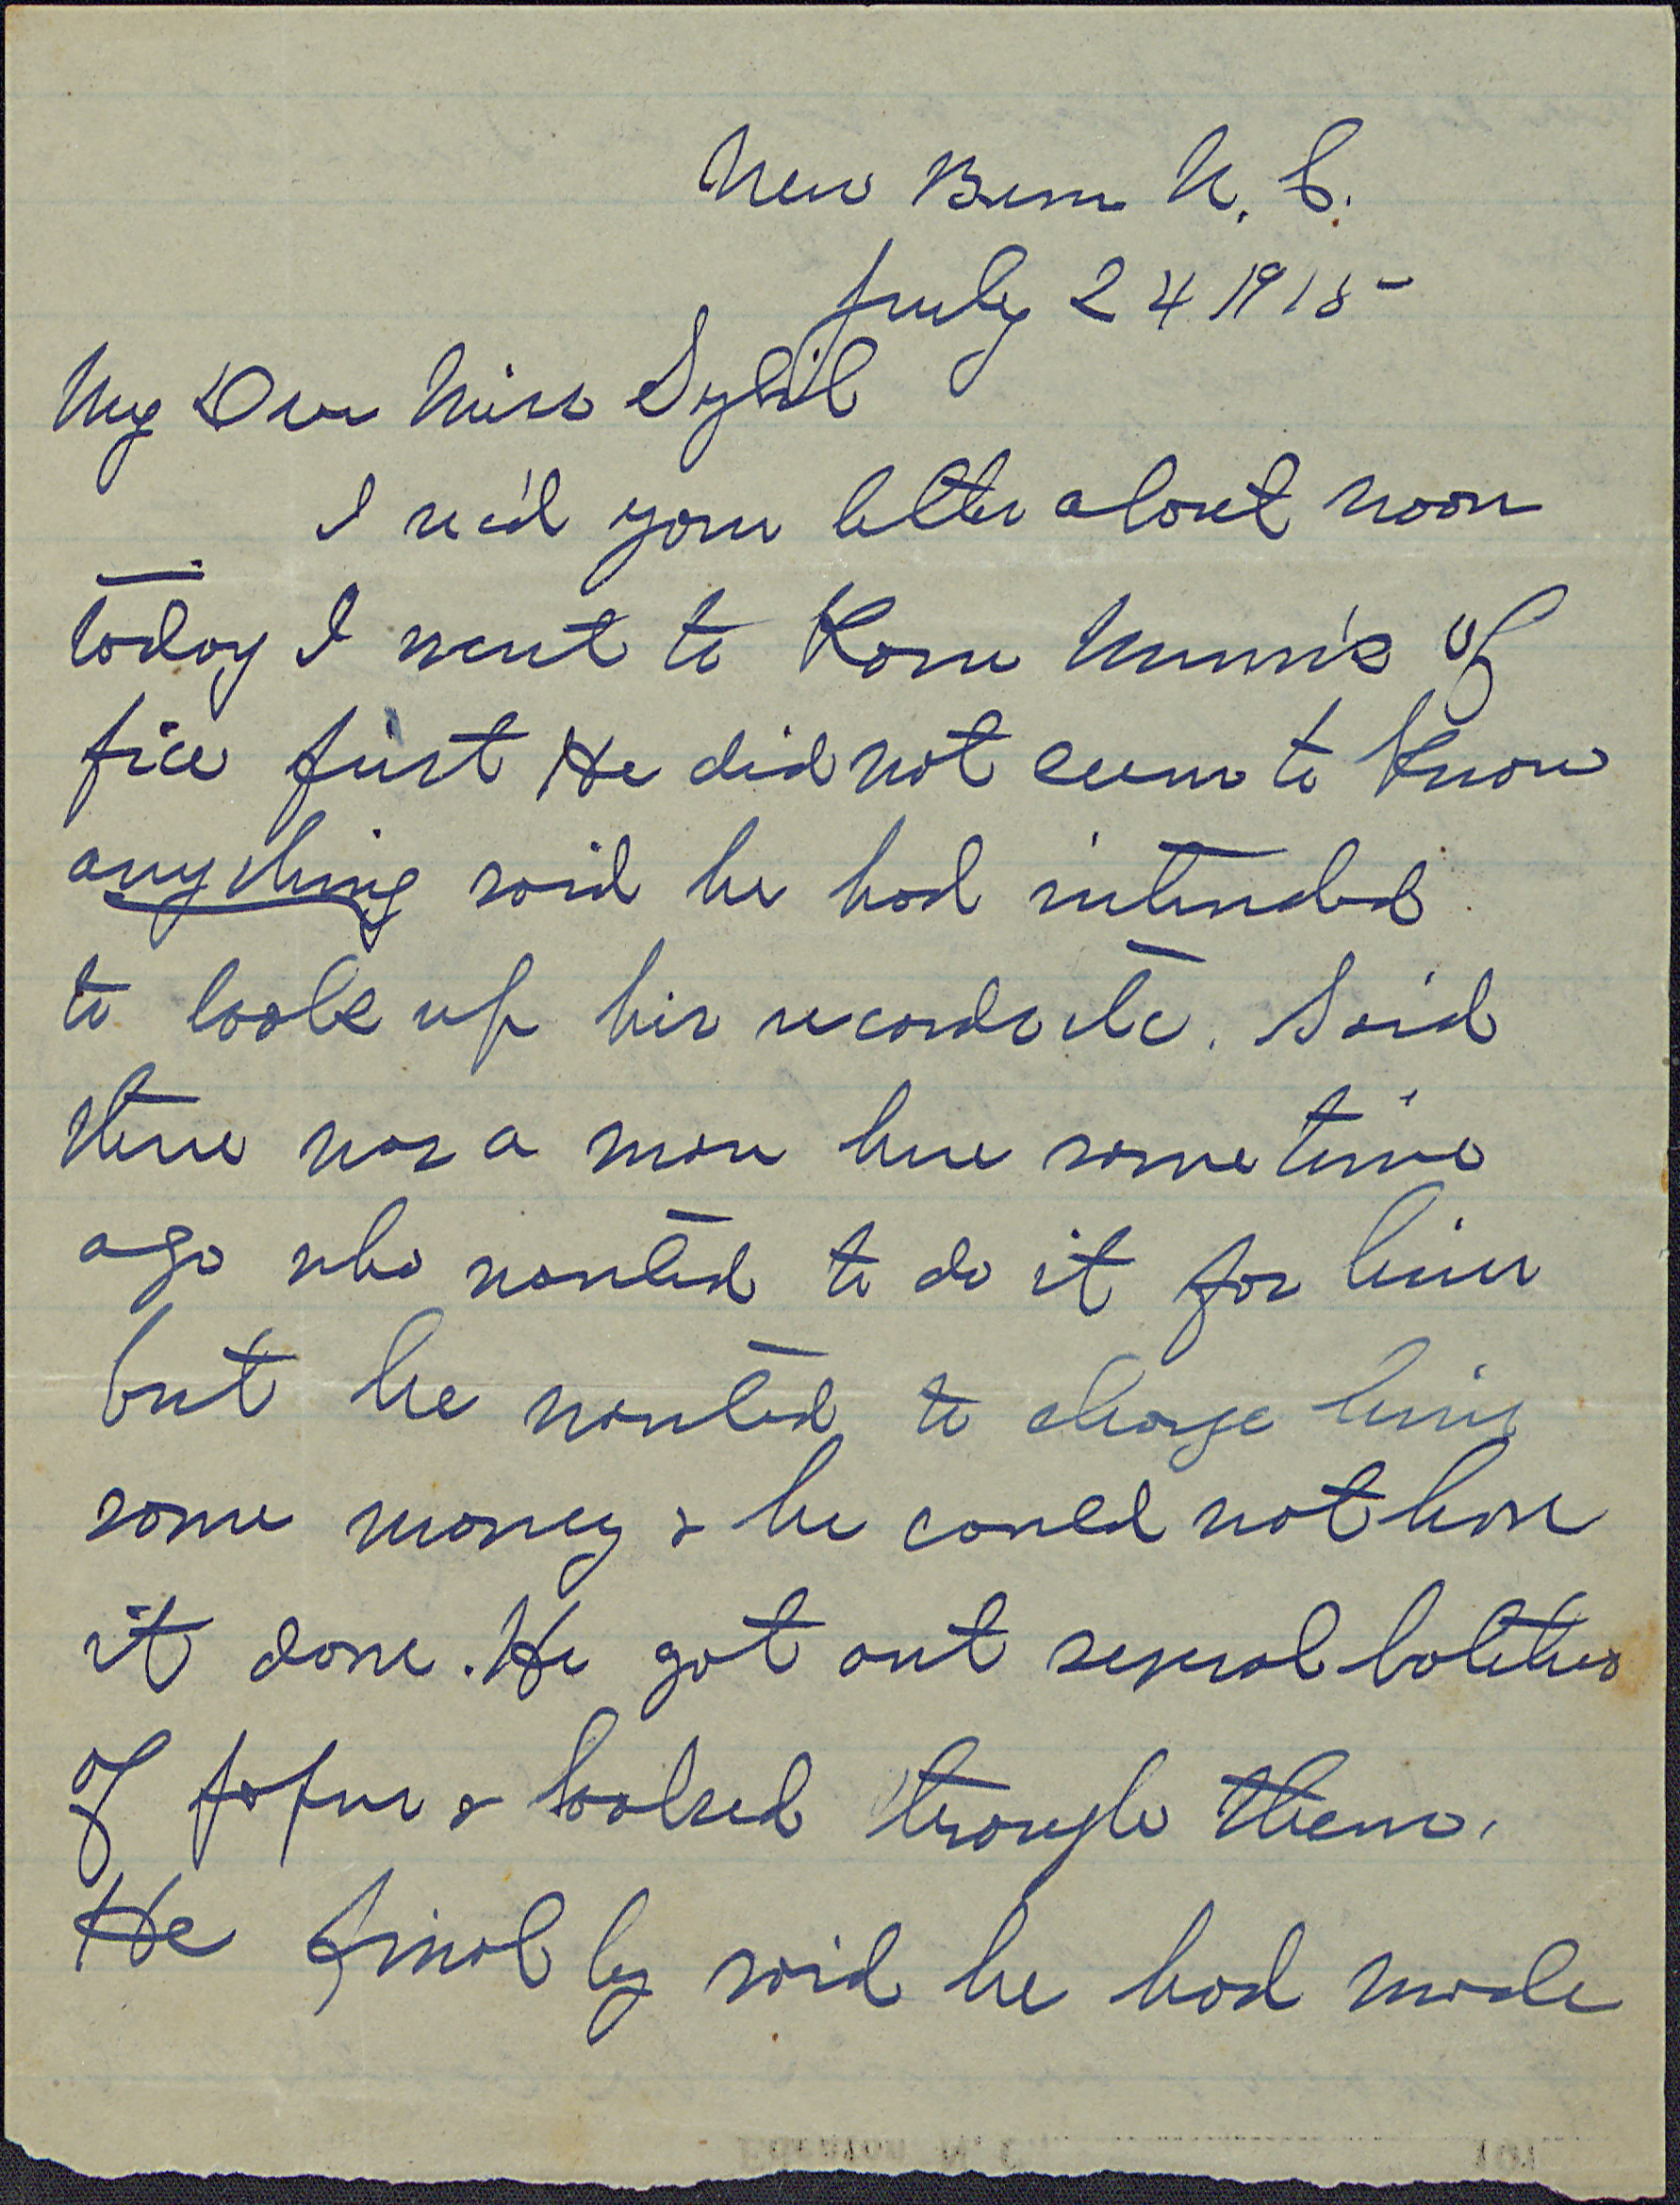 New Bern N. C.
July 24 1915-
My Dear Miss Sybil
I rec'd your letter about noon
today I went to Rom Nunn's of
fice first He did not seem to know
anything said he had intended
to look up his records etc. Said
there was a man here sometime
ago who wanted to do it for him
but he wanted to charge him
some money & he could not have
it done. He got out several batches
of paper & looked through them.
He finally said he had made